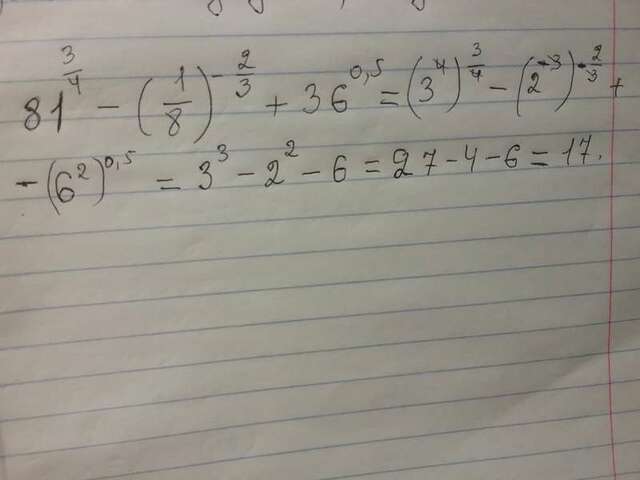 81^{3/4} - (1/8)^{-2/3} + 36^{0,5} = (3^4)^{3/4} - (2^{-3})^{-2/3} +
- (6^2)^{0,5} = 3^3 - 2^2 - 6 = 27 - 4 - 6 = 17.